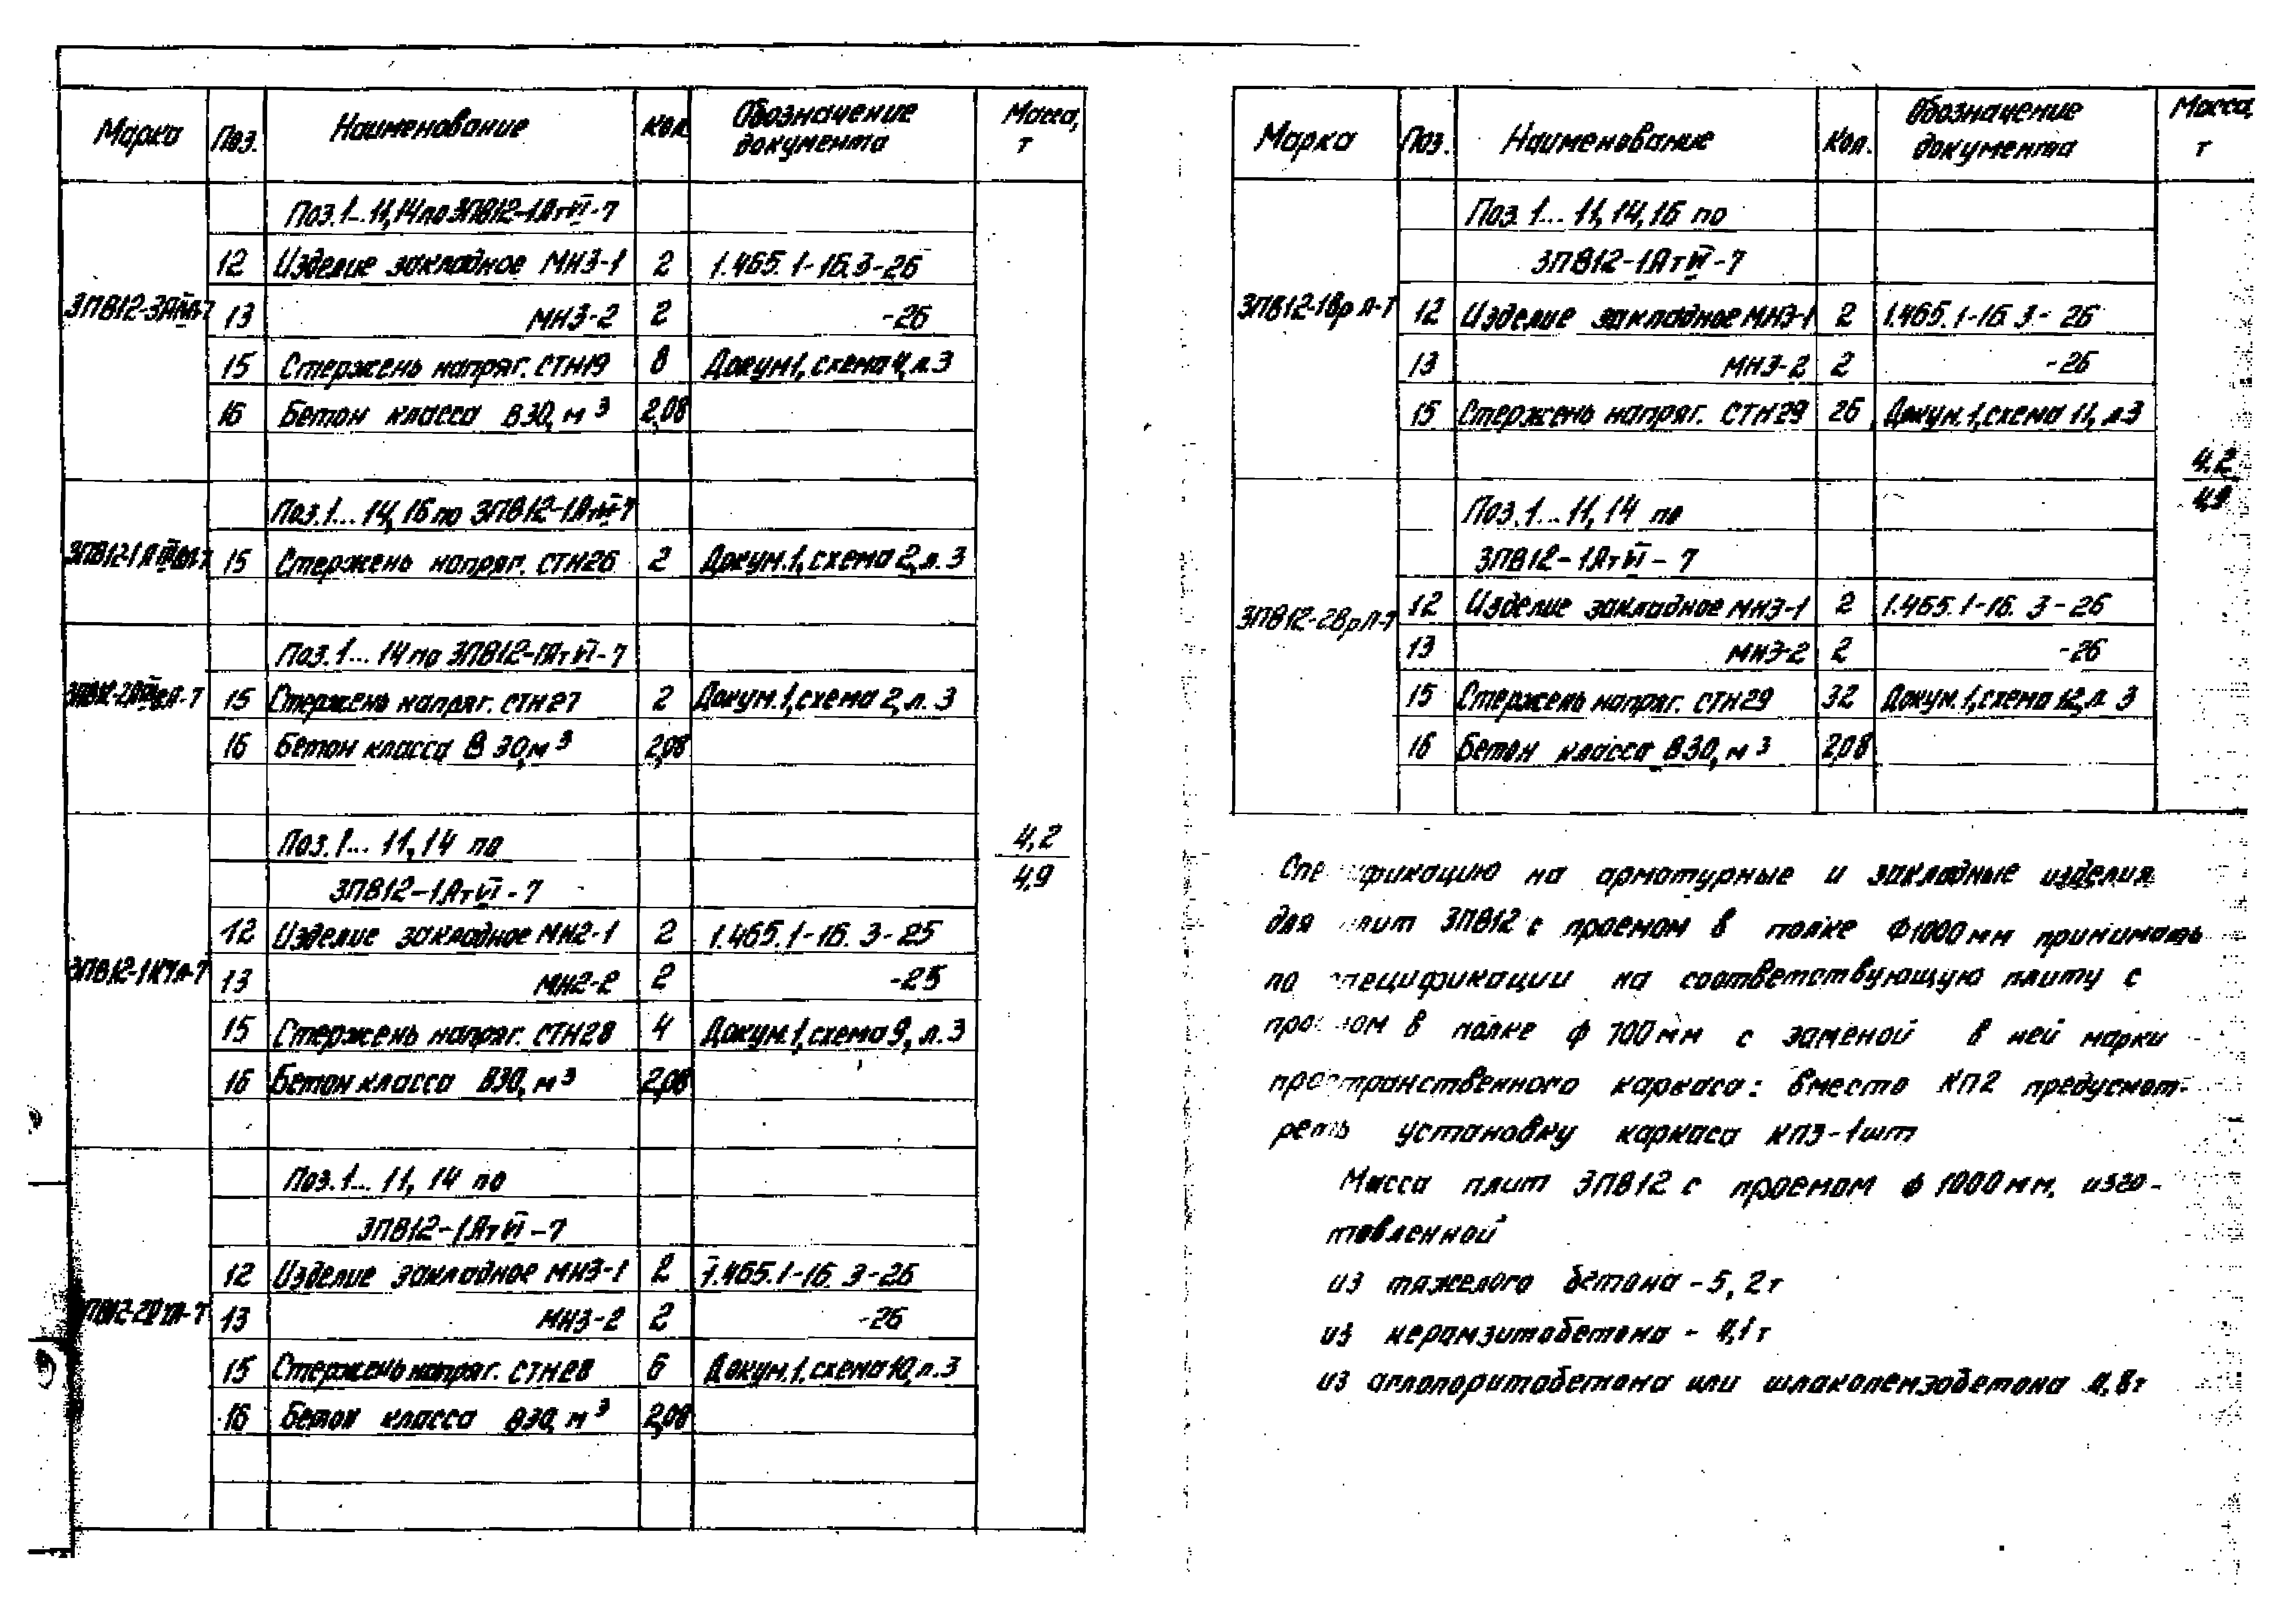 Марка Поз. Наименование Кол. Обозначение документа Масса, т
Поз.1...11,14 по 3ПВ12-1АтVI-7
12 Изделие закладное МН3-1 2 1.465.1-16.3-26
13 МН3-2 2 -26
15 Стержень напряг. СТН19 8 Докум1, схема 4, л.3
16 Бетон класса В30, м³ 2,08
Поз.1...14,16 по 3ПВ12-1АтVI-7
15 Стержень напряг. СТН26 2 Докум.1, схема 2, л.3
Поз.1...14 по 3ПВ12-1АтVI-7
15 Стержень напряг. СТН27 2 Докум.1, схема 2, л.3
16 Бетон класса В 30, м³ 2,08
Поз.1... 11,14 по
3ПВ12-1АтVI-7
12 Изделие закладное МН2-1 2 1.465.1-16. 3-25
3ПВ12-1К7Л-7 13 МН2-2 2 -25
15 Стержень напряг. СТН28 4 Докум.1, схема 9, л.3
16 Бетон класса В30, м³ 2,08
4,2
4,9
Поз.1... 11, 14 по
3ПВ12-1АтVI-7
12 Изделие закладное МН3-1 2 1.465.1-16. 3-26
13 МН3-2 2 -26
15 Стержень напряг. СТН28 6 Докум.1. схема 10, л.3
16 Бетон класса В30, м³ 2,08
Марка Поз. Наименование Кол. Обозначение документа Масса, т
Поз. 1... 11, 14, 16 по
3ПВ12-1АтVI-7
3ПВ12-1ВрЛ-7 12 Изделие закладное МН3-1 2 1.465.1-16. 3-26
13 МН3-2 2 -26
15 Стержень напряг. СТН29 26 Докум.1, схема 11, л.3
4,2
4,9
Поз.1...11,14 по
3ПВ12-1АтVI-7
3ПВ12-2ВрЛ-7 12 Изделие закладное МН3-1 2 1.465.1-16. 3-26
13 МН3-2 2 -26
15 Стержень напряг. СТН29 32 Докум.1, схема 12, л. 3
16 Бетон класса В30, м³ 2,08
Спецификацию на арматурные и закладные изделия
для плит 3ПВ12 с проемом в полке Ф1000мм принимать
по спецификации на соответствующую плиту с
проемом в полке ф 700мм с заменой в ней марки
пространственного каркаса: вместо КП2 предусмот-
реть установку каркаса КП3-1шт
Масса плит 3ПВ12 с проемом ф 1000мм, изго-
товленной
из тяжелого бетона - 5,2т
из керамзитобетона - 4,1т
из аглопоритобетона или шлакопемзобетона 4,8т